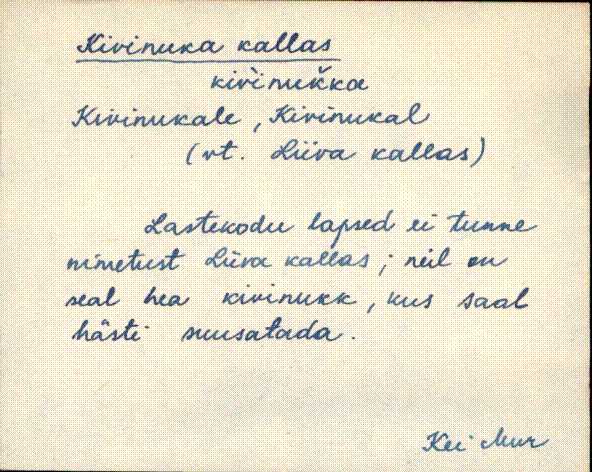 Kivinuka kallas
kivìnuk̆ka
Kivinukale, Kivinukal
(vt. Liiva kallas)
Lastekodu lapsed ei tunne
nimetust Liiva kallas; neil on
seal hea kivinukk, kus saab
hästi suusatada.
Kei Mur